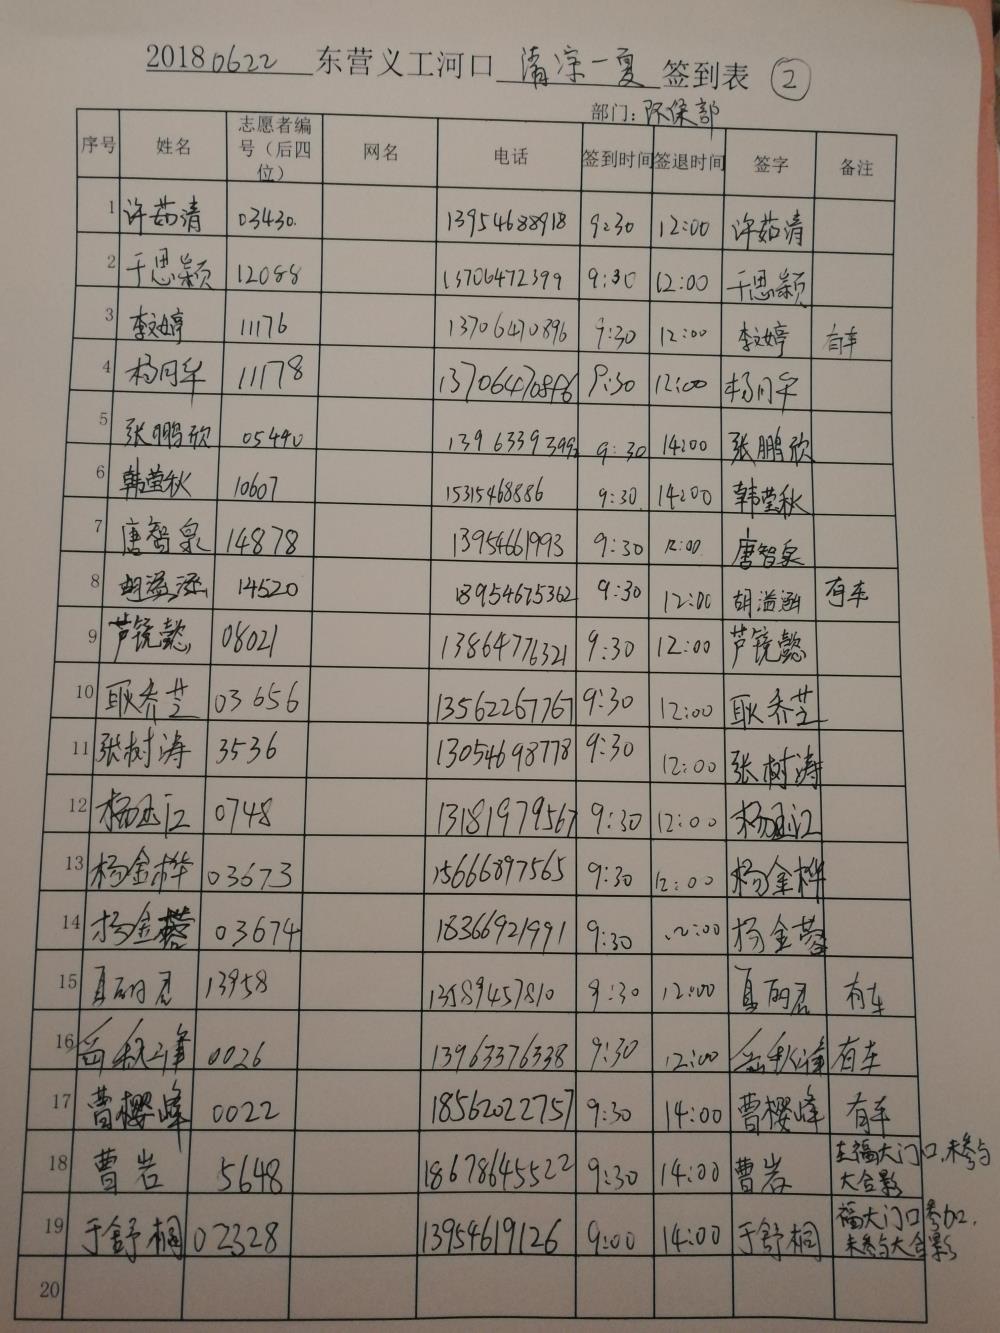 20180622 东营义工河口 清凉一夏 签到表 ②
部门：环保部
序号 姓名 志愿者编号（后四位） 网名 电话 签到时间 签退时间 签字 备注
1 许茹清 03430. 13954688918 9:30 12:00 许茹清
2 于思颖 12088 13706472399 9:30 12:00 于思颖
3 李文婷 11176 13706470896 9:30 12:00 李文婷 有车
4 杨月华 11178 13706470896 9:30 12:00 杨月华
5 张鹏欣 05440 13963393992 9:30 14:00 张鹏欣
6 韩莹秋 10607 15315468886 9:30 14:00 韩莹秋
7 唐智泉 14878 13954661993 9:30 12:00 唐智泉
8 胡溢涵 14520 18954675362 9:30 12:00 胡溢涵 有车
9 芦镜懿 08021 13864776321 9:30 12:00 芦镜懿
10 耿乔芝 03656 13562267767 9:30 12:00 耿乔芝
11 张树涛 3536 13054698778 9:30 12:00 张树涛
12 杨玉江 0748 13181979567 9:30 12:00 杨玉江
13 杨金桦 03673 15666897565 9:30 12:00 杨金桦
14 杨金蓉 03674 18366921991 9:30 12:00 杨金蓉
15 13958 13589457810 9:30 12:00 有车
16 秋峰 0026 13963376338 9:30 12:00 秋峰 有车
17 曹樱峰 0022 18562022757 9:30 14:00 曹樱峰 有车
18 曹岩 5648 18678645522 9:30 14:00 曹岩 在福大门口，未参与大合影
19 于舒桐 02328 13954619126 9:00 14:00 于舒桐 福大门口参加，未参与大合影
20